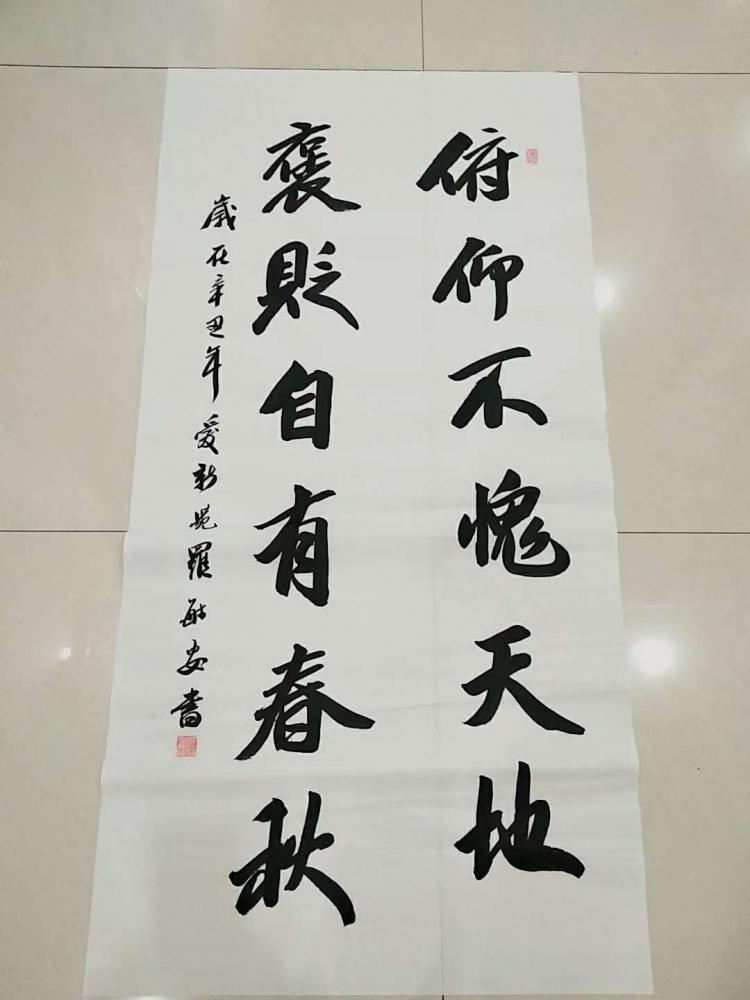 俯仰不愧天地
褒貶自有春秋
歲在辛丑年愛新覺羅毓安書